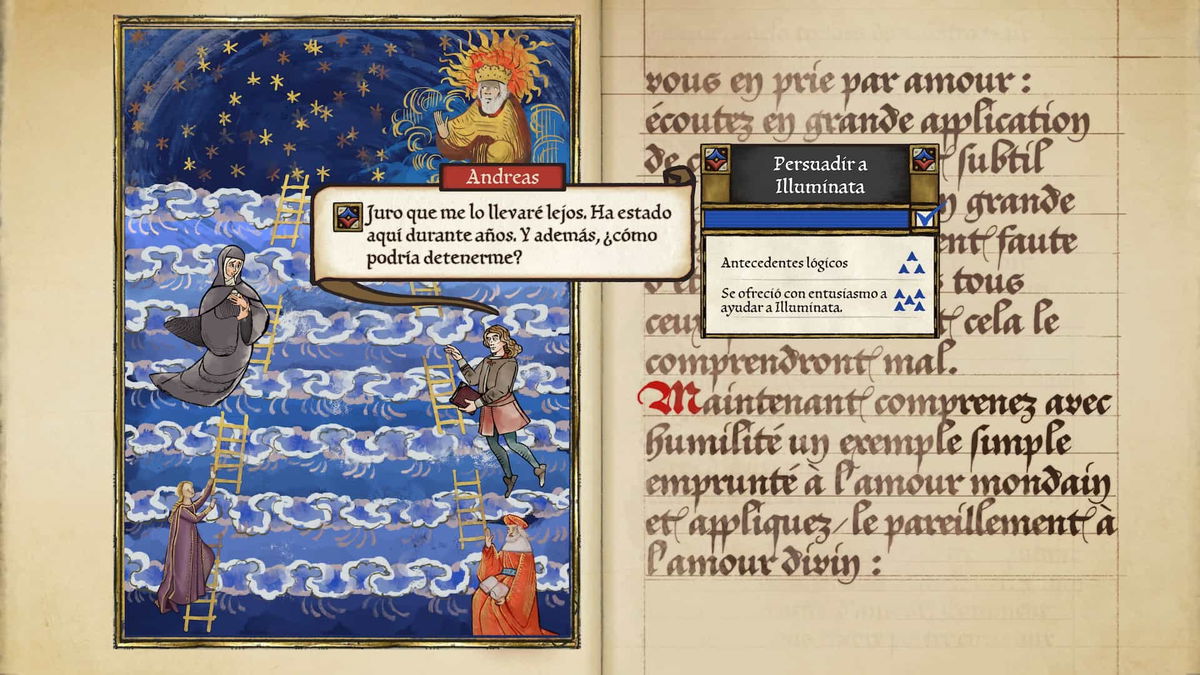 Andreas
Juro que me lo llevaré lejos. Ha estado
aquí durante años. Y además, ¿cómo
podría detenerme?
Persuadir a
Illuminata
Antecedentes lógicos
Se ofreció con entusiasmo a
ayudar a Illuminata.
vous en prie par amour :
écoutez en grande application
subtil
grande
faute
tous
cela le
comprendront mal.
Maintenant comprenez avec
humilité un exemple simple
emprunté à l'amour mondain
et appliquez-le pareillement à
l'amour divin :